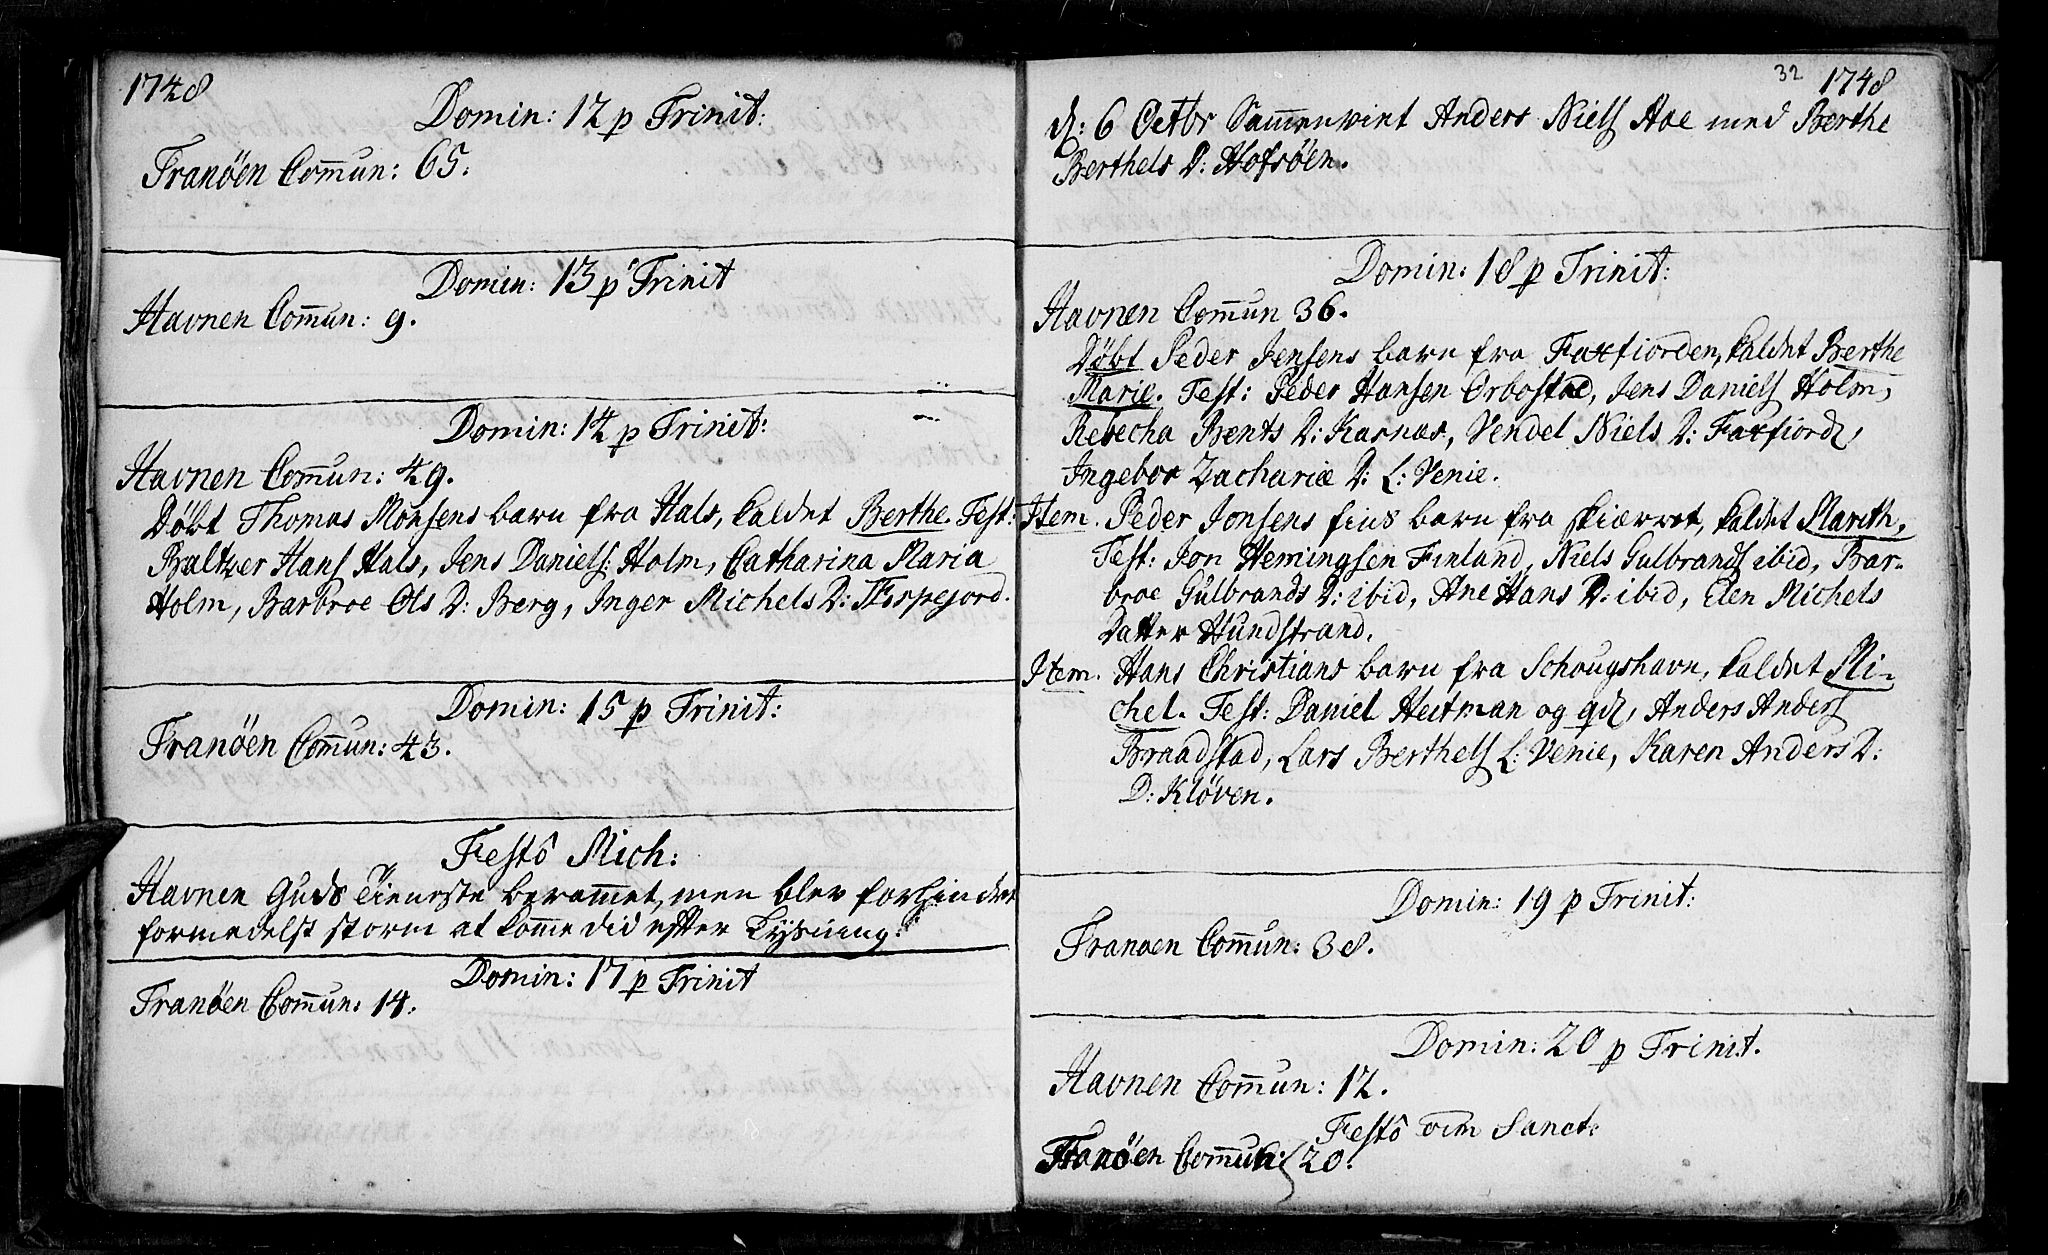 1748
Domin: 12 p Trinit:
Tranöen Com̄un: 65.
Domin: 13 p Trinit
Havnen Com̄un: 9.
Domin: 14 p Trinit:
Havnen Com̄un: 49.
Döbt Thomas Monsens barn fra Hals, kaldet Berthe. Test:
Baltzer Hans Hals, Jens Daniels: Holm, Catharina Maria
Holm, Barbroe Ols D: Berg, Inger Michels D: Terpejord.
Domin: 15 p Trinit:
Tranöen Com̄un: 43.
Festô Mich:
Havnen Guds Tieneste beram̄et, men blev forhindret
formedelst storm at kom̄e did efter Lysning:
Domin: 17 p Trinit
Tranöen Com̄un: 14.
32 1748
d: 6 Octbr Sam̄enviet Anders Niels Aae med Berthe
Berthels D: Hofsöen.
Domin: 18 p Trinit:
Havnen Com̄un 36.
Döbt Peder Jensens barn fra Faxfiorden, kaldet Berthe
Marie. Test: Peder Hansen Orbostad, Jens Daniels Holm,
Rebecha Bents D: Kasnæs, Vendel Niels D: Faxfiord,
Ingebor Zachariæ D: L: Venie.
Item. Peder Jonsens fins barn fra Skiærret, kaldet Marith,
Test: Jon Hemingsen Finland, Niels Gulbrands ibid, Bar-
broe Gulbrands D: ibid, Ane Hans D: ibid, Elen Michels
Datter Hundstrand.
Item. Hans Christians barn fra Schougshavn, kaldet Mi-
chel. Test: Daniel Heitman og qd, Anders Anders
Braadstad, Lars Berthels L: Venie, Karen Anders D:
D: Klöven.
Domin: 19 p Trinit:
Tranoen Com̄un: 38.
Domin: 20 p Trinit.
Havnen Com̄un: 12.
Festô om̄ Sanct:
Tranöen Com̄un: 20.